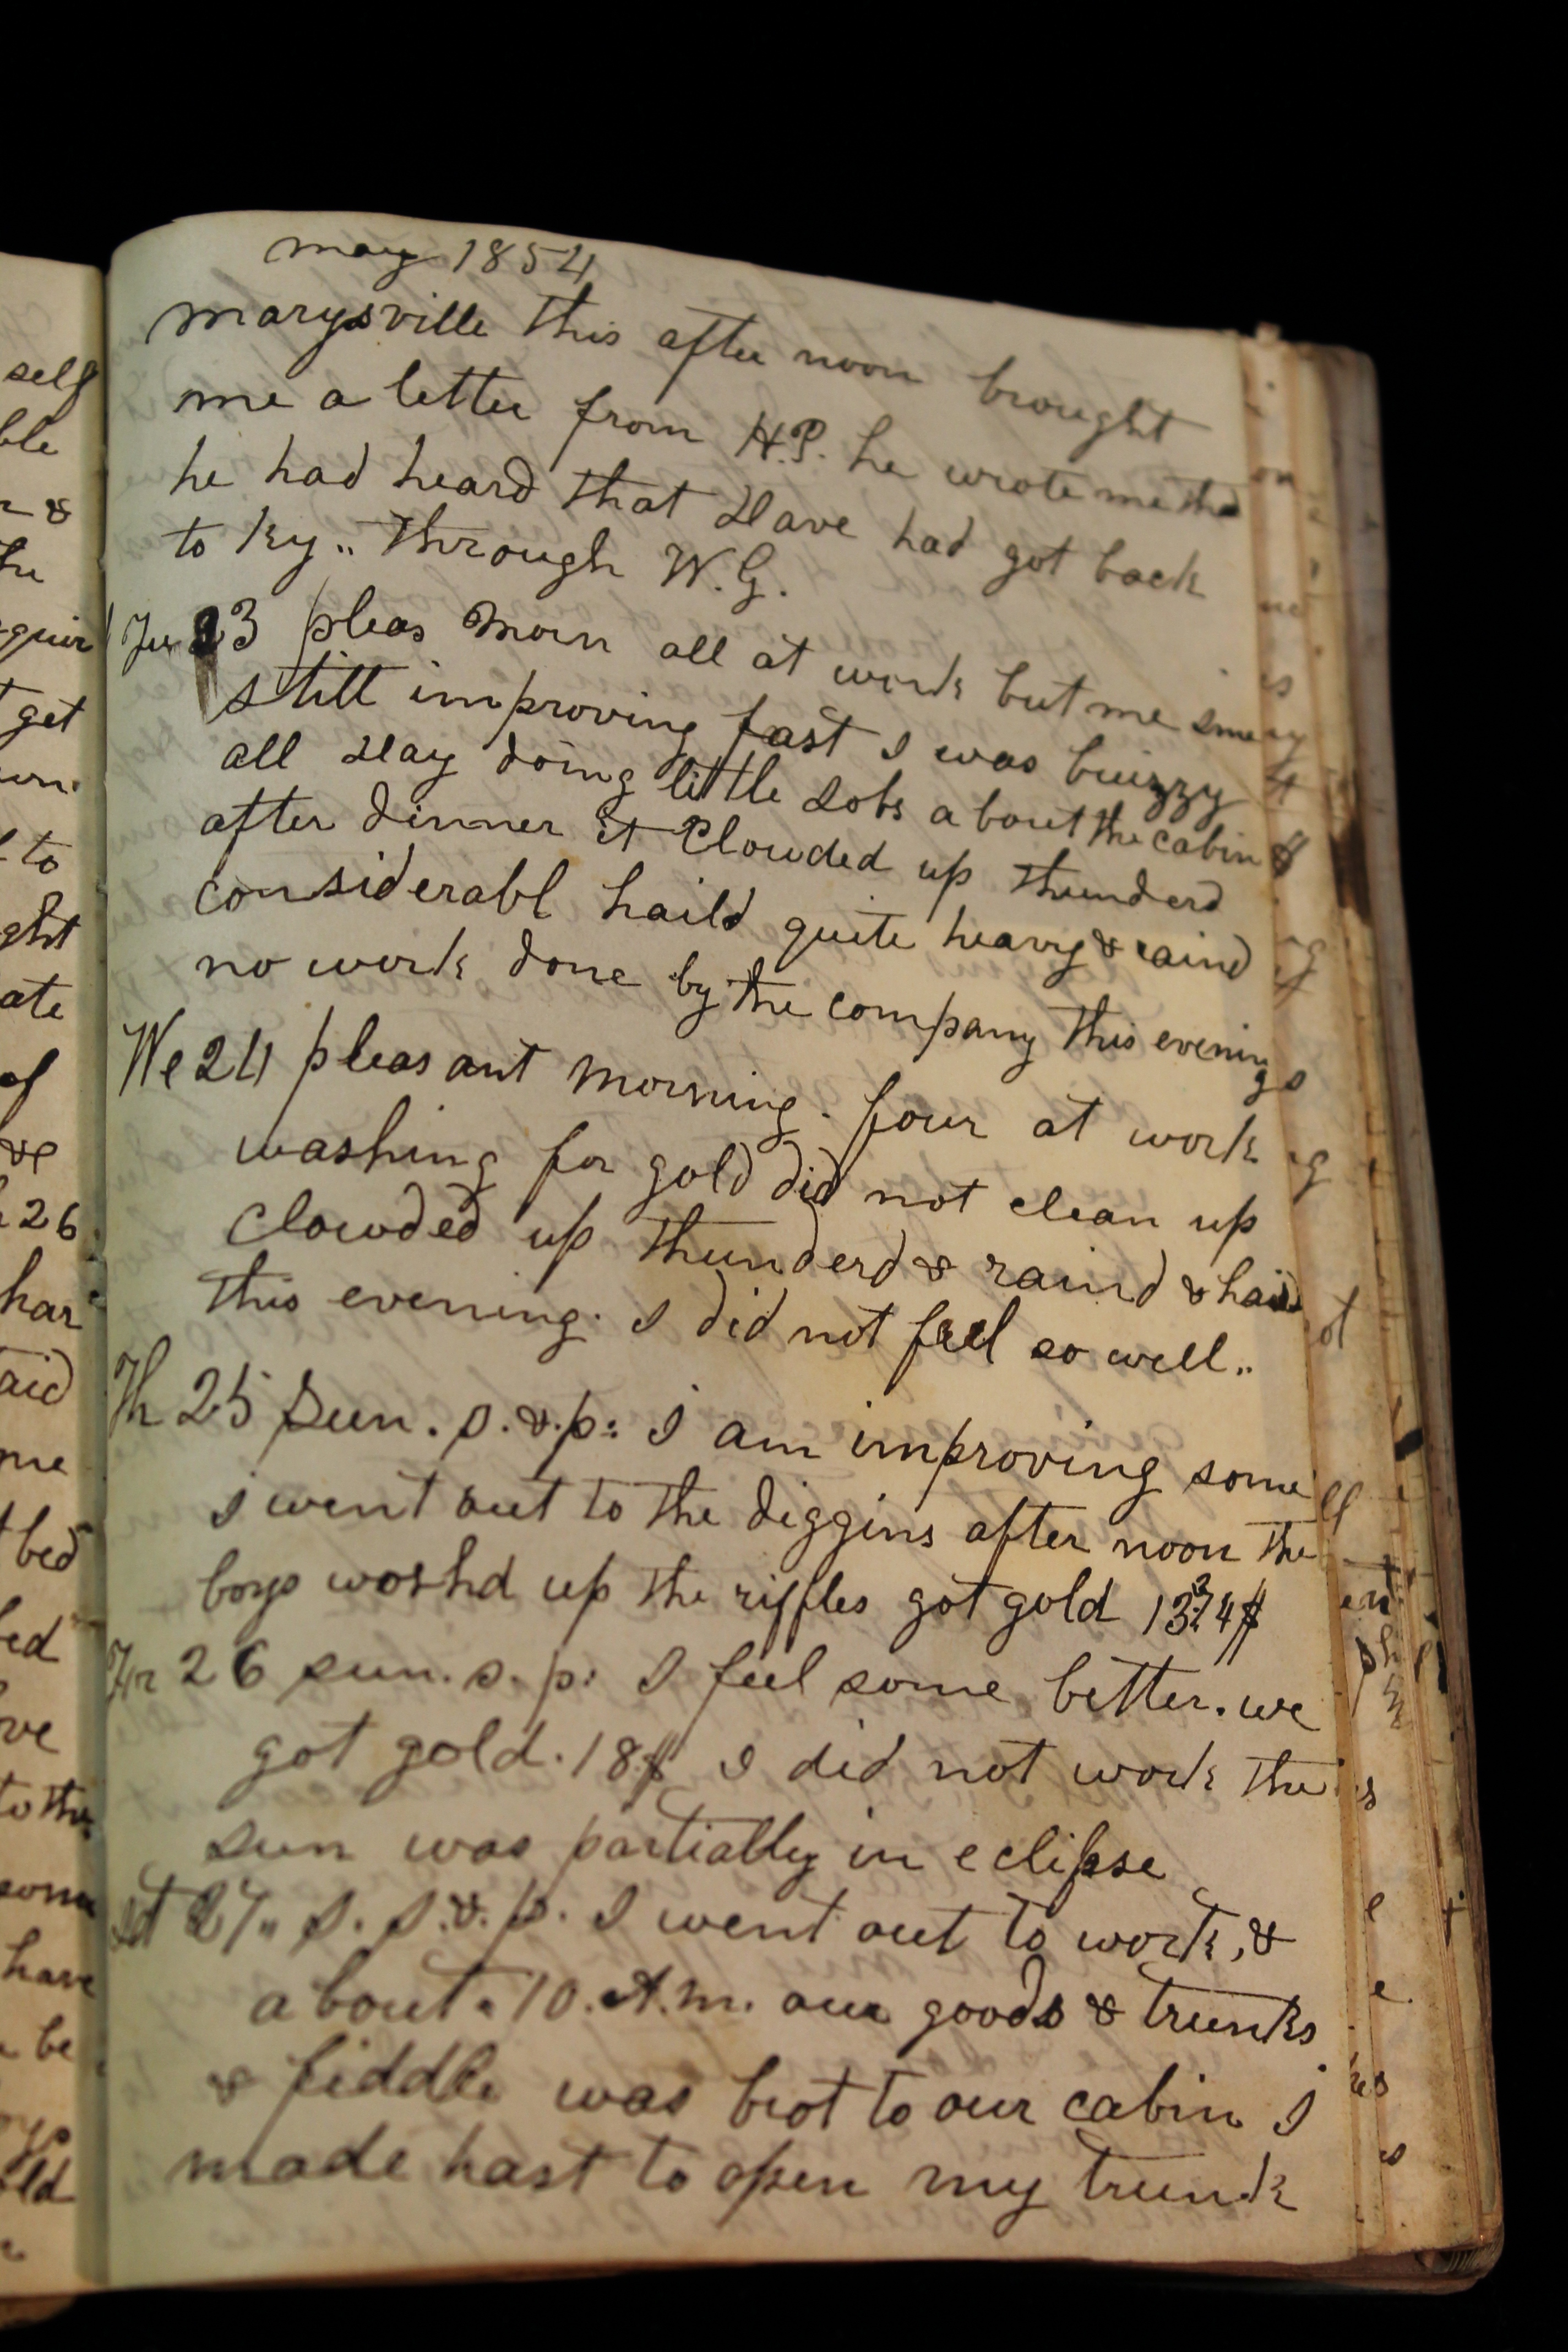 may 1854
marysville this after noon brought
me a letter from H.P. he wrote me tha
he had heard that Dave had got back
to Ky.. through W.G.
Tu 23 pleas morn all at work but me
still improving fast I was buizzy
all day doing little Jobs about the cabin
after dinner it Clowded up thunderd
considerabl haild quite heavy & raind
no work done by the company this evening
We 24 pleasant morning. four at work
washing for gold did not clean up
Clowded up thunderd & raind & haild
this evening. I did not feel so well..
Th 25 Sun. s. & p: I am improving some
I went out to the diggins after noon the
boys woshd up the riffles got gold
Fr 26 sun. s. p: I feel some better. we
got gold. 18$ I did not work the
sun was partially in eclipse
27.. S. S. & p. I went out to work, &
about. 10. A.m. our goods & trunks
& fiddle was brot to our cabin I
made hast to open my trunk